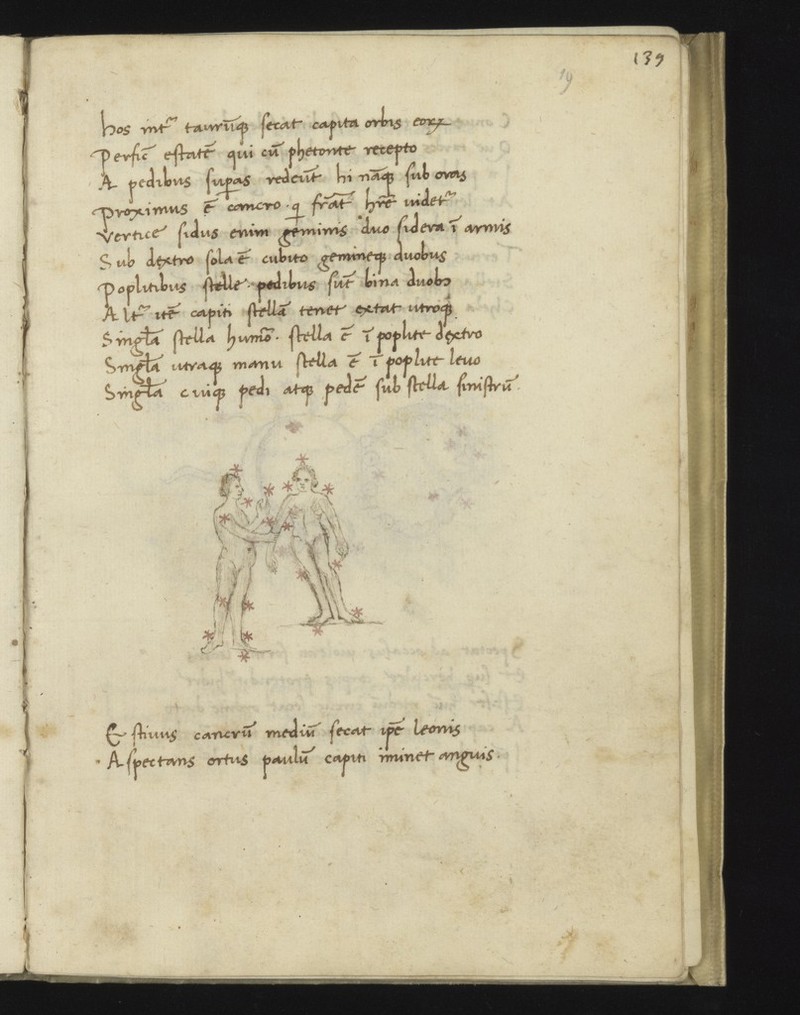 139
19
hos int᷑ taurūqꝫ secat capita orbis eoꝝ
Perfic̄ estatē qui cū phetonte recepto
A pedibus suꝑas redeūt hi nāqꝫ sub oras
Proximus ē cancro · qi frāt᷑ hr̄e uidet᷑
Vertice sidus enim geminis duo sidera ī armis
Sub dextro sola ē cubito gemineqꝫ duobus
Poplitibus stelle · pedibus sūt bina duobꝫ
Alt᷑ itē capiti stellā tenet extat utroqꝫ
Singl̄a stella hum̄o · stella ē ī poplite dextro
Singl̄a utraqꝫ manu stella ē ī poplite leuo
Singl̄a cuiqꝫ pedi atqꝫ pedē sub stella sinistrū ·
Estiuus cancrū mediū secat ip̄e leonis
Aspectans ortus paulū capiti īminet anguis ·